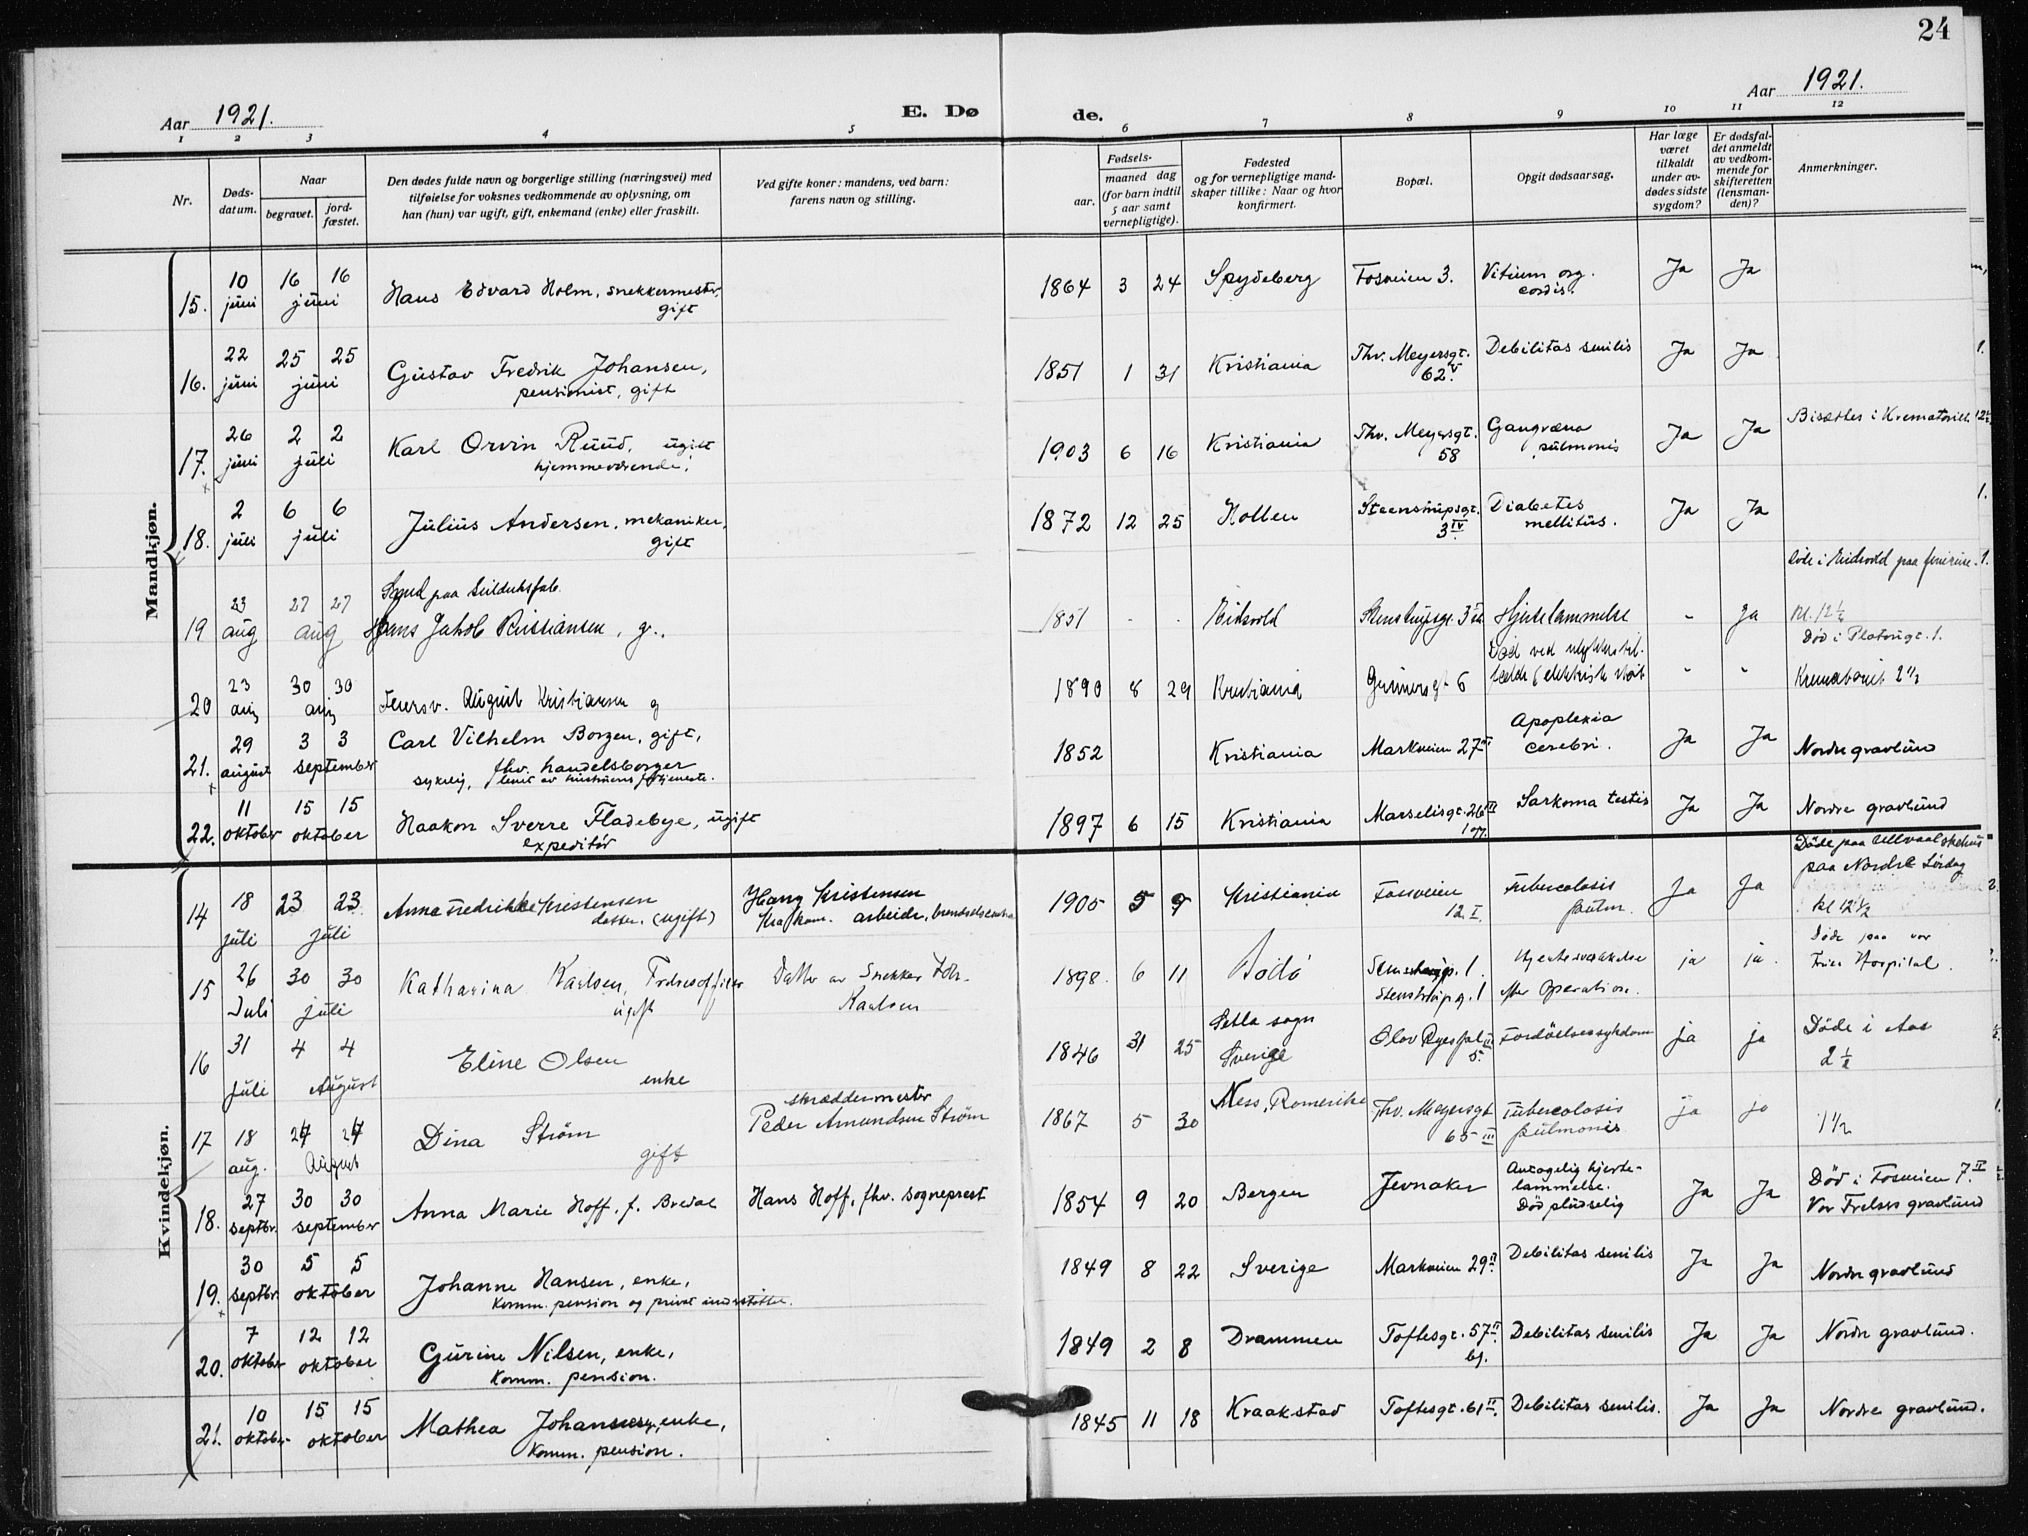 24
Aar 1921.
E. Døde.
Aar 1921.
1 2 3 4 5 6 7 8 9 10 11 12
Nr.
Døds-
datum.
Naar
begravet.
jord-
fæstet.
Den dødes fulde navn og borgerlige stilling (næringsvei) med
tilføielse for voksnes vedkommende av oplysning, om
han (hun) var ugift, gift, enkemand (enke) eller fraskilt.
Ved gifte koner: mandens, ved barn:
farens navn og stilling.
Fødsels-
aar.
maaned dag
(for barn indtil
5 aar samt
vernepligtige).
Fødested
og for vernepligtige mand-
skaper tillike: Naar og hvor
konfirmert.
Bopæl.
Opgit dødsaarsag.
Har læge
været
tilkaldt
under av-
dødes sidste
sygdom?
Er dødsfal-
det anmeldt
av vedkom-
mende for
skifteretten
(lensman-
den)?
Anmerkninger.
Mandkjøn.
15. 10 juni 16 16 juni Hans Edvard Holm, snekkermester,
gift
1864 3 24 Spydeberg Fosveien 3. Vitium org.
cordis. Ja Ja
16. 22 juni 25 25 juni Gustav Fredrik Johansen,
pensionist, gift
1851 1 31 Kristiania Thv. Meyersgt.
62 V. Debilitas senilis Ja Ja
17. 26 juni 2 2 juli Karl Orvin Ruud, ugift
hjemmeværende.
1903 6 16 Kristiania Thv. Meyersgt.
58 Gangræna
pulmonis Ja Ja Bisættes i Krematoriet 12½
18. 2 juli 6 6 juli Julius Andersen, mekaniker,
gift
1872 12 25 Holten Steenstrupsgt.
3 IV. Diabetes
mellitus. Ja Ja
19 23 aug 27 27 aug paa
Hans Jakob Kristiansen, g.
1851 Eidsvold Stenstrupsgt. Hjertelammelse - Ja
Døde i Eidsvold paa
Kl. 12½
20 23 aug 30 30 aug August Kristiansen g
1890 8 29 Kristiania 6 Død ved
elektrisk støt - -
Død i 1.
Krematoriet 2½
21. 29 august 3 3 september Carl Vilhelm Borgen, gift,
fhv. handelsborger
sykelig, levet av hustruens fortjeneste.
1852 Kristiania Markveien 27 Apoplexia
cerebri. Ja Ja Nordre gravlund
22. 11 oktober 15 15 oktober Haakon Sverre Fladebye, ugift
expeditør
1897 6 15 Kristiania Marselisgt. 26 III Sarkoma testis Ja Ja Nordre gravlund
Kvindekjøn.
14 18 juli 23 23 juli Anna Fredrikke Kristensen
datter (ugift)
Hans Kristensen
arbeider,
1905 5 9 Kristiania Fossveien
12 I. Tuberculosis
pulm. Ja Ja Døde paa Ullevaal
paa Nordre Lørdag
Kl 12½
15 26 Juli 30 30 juli Katharina Karlsen, Frelsesoffiser
ugift
Datter av Snekker Joh.
Karlsen
1898. 6 11 Bodö 1.
Stenstrupg. 1 Hjertesvækkelse
efter Operation. ja ja. Døde paa vor
Frues Hospital.
16 31 juli 4 4 August Eline Olsen
enke
1846 31 25 sogn
Sverige Olav Ryes pl
5. Fordöielsessykdom ja ja Döde i Aas
2½
17 18 aug. 24 24 August Dina Strøm
gift
skræddermester
Peder Amundsen Strøm
1867 5 30 Ness, Romerike Thv. Meyersgt
65 III Tuberculosis
pulmonis ja ja 1½
18. 27 septbr. 30 30 september Anna Marie Hoff, f. Bredal
Hans Hoff, fhv. sogneprest
1854 9 20 Bergen Jevnaker Antagelig hjerte-
lammelse.
Død pludselig Ja Ja Død i Fosveien 7 II.
Vor Frelsers gravlund
19. 30 septbr. 5 5 oktober Johanne Hansen, enke,
Komm. pension og privat understøttet.
1849 8 22 Sverige Markveien 29 II. Debilitas senilis Ja Ja Nordre gravlund
20. 7 oktober 12 12 oktober Gurine Nilsen, enke,
Komm. pension.
1849 2 8 Drammen Toftesgt. 57 II.
bj. Debilitas senilis Ja Ja Nordre gravlund.
21. 10 oktober 15 15 oktober Mathea Johansen, enke,
Komm. pension.
1845 11 18 Kraakstad Toftesgt. 61 II. Debilitas senilis. Ja Ja Nordre gravlund.